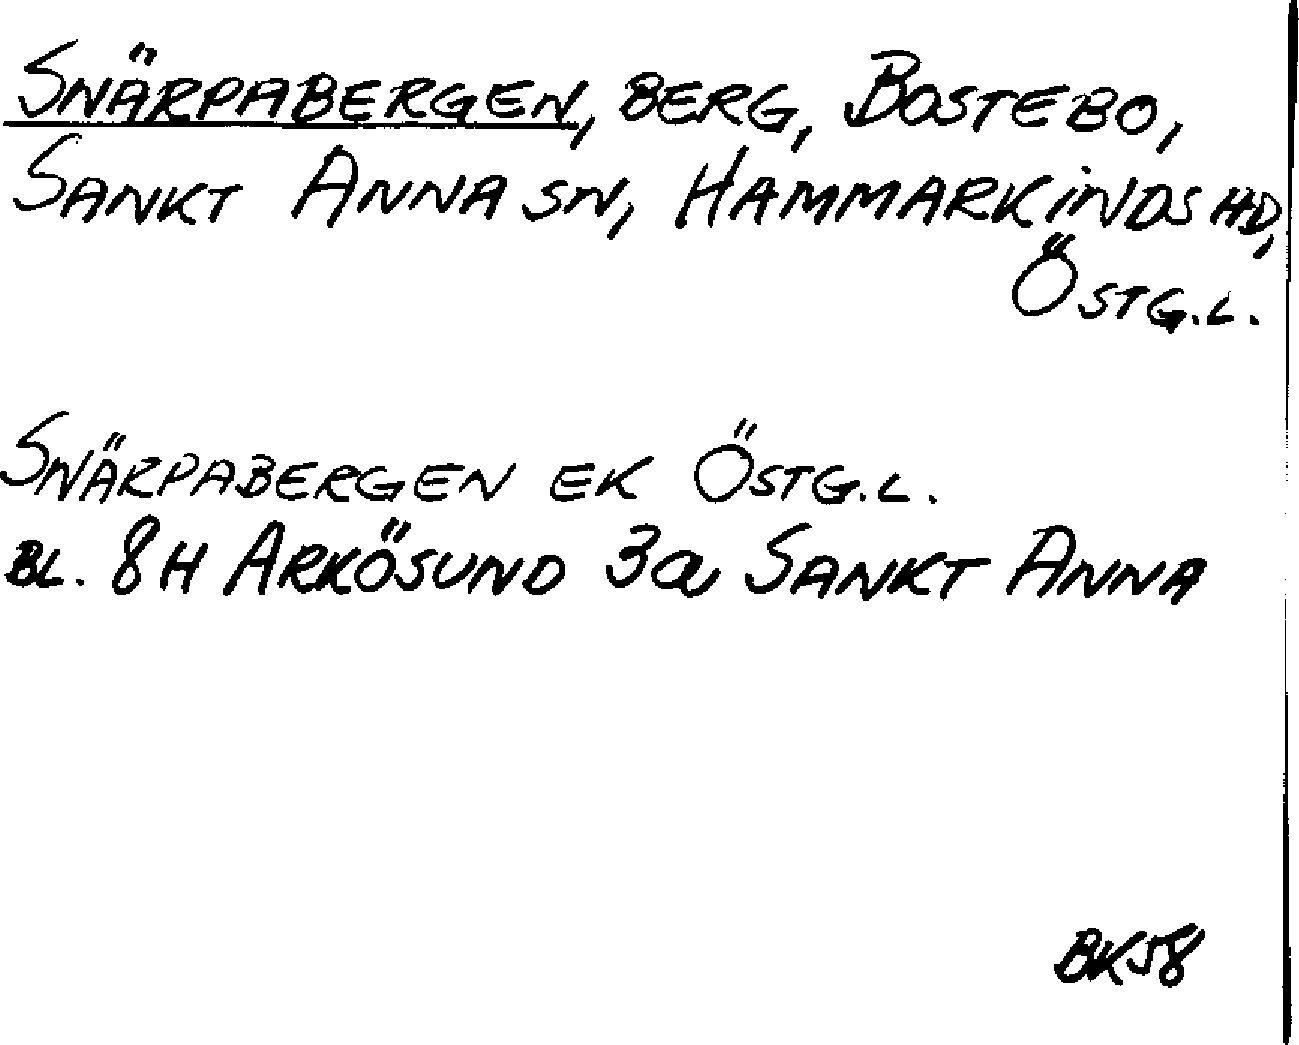 SNÄRPABERGEN, BERG, BOSTEBO,
SANKT ANNA SN, HAMMARKINDS HD,
ÖSTG.L.
SNÄRPABERGEN EK ÖSTG.L.
BL. 8H ARKÖSUND 3a SANKT ANNA
BK58